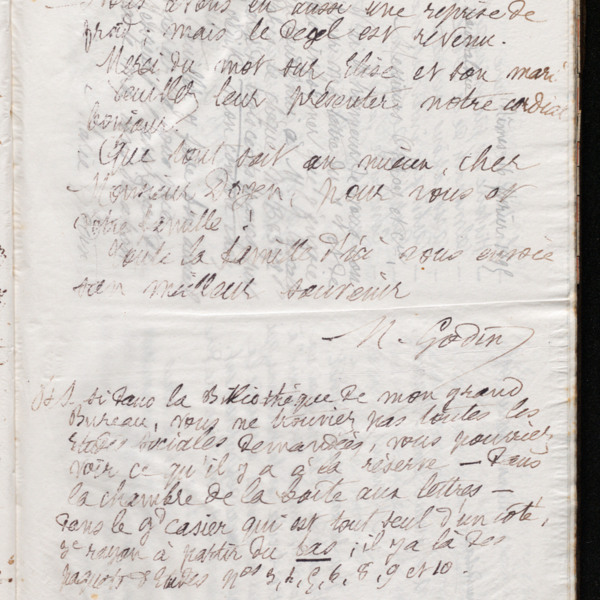 Nous avons eu aussi une reprise de
froid ; mais le dégel est revenu.
Merci du mot sur Elise et son mari
veuillez leur présenter notre cordial
bonjour.
Que tout soit au mieux, cher
Monsieur Doyen, pour vous et
votre famille !
Toute la famille d'ici vous envoie
son meilleur souvenir
M. Godin
P.S. Si dans la Bibliothèque de mon grand
Bureau, vous ne trouviez pas toutes les
études sociales demandées, vous pourriez
voir ce qu'il y a à la réserve — Dans
la chambre de la boîte aux lettres —
Dans le gd casier qui est tout seul d'un côté,
3e rayon à partir du bas ; il y a là des
paquets études nos 3, 4, 5, 6, 8, 9 et 10.